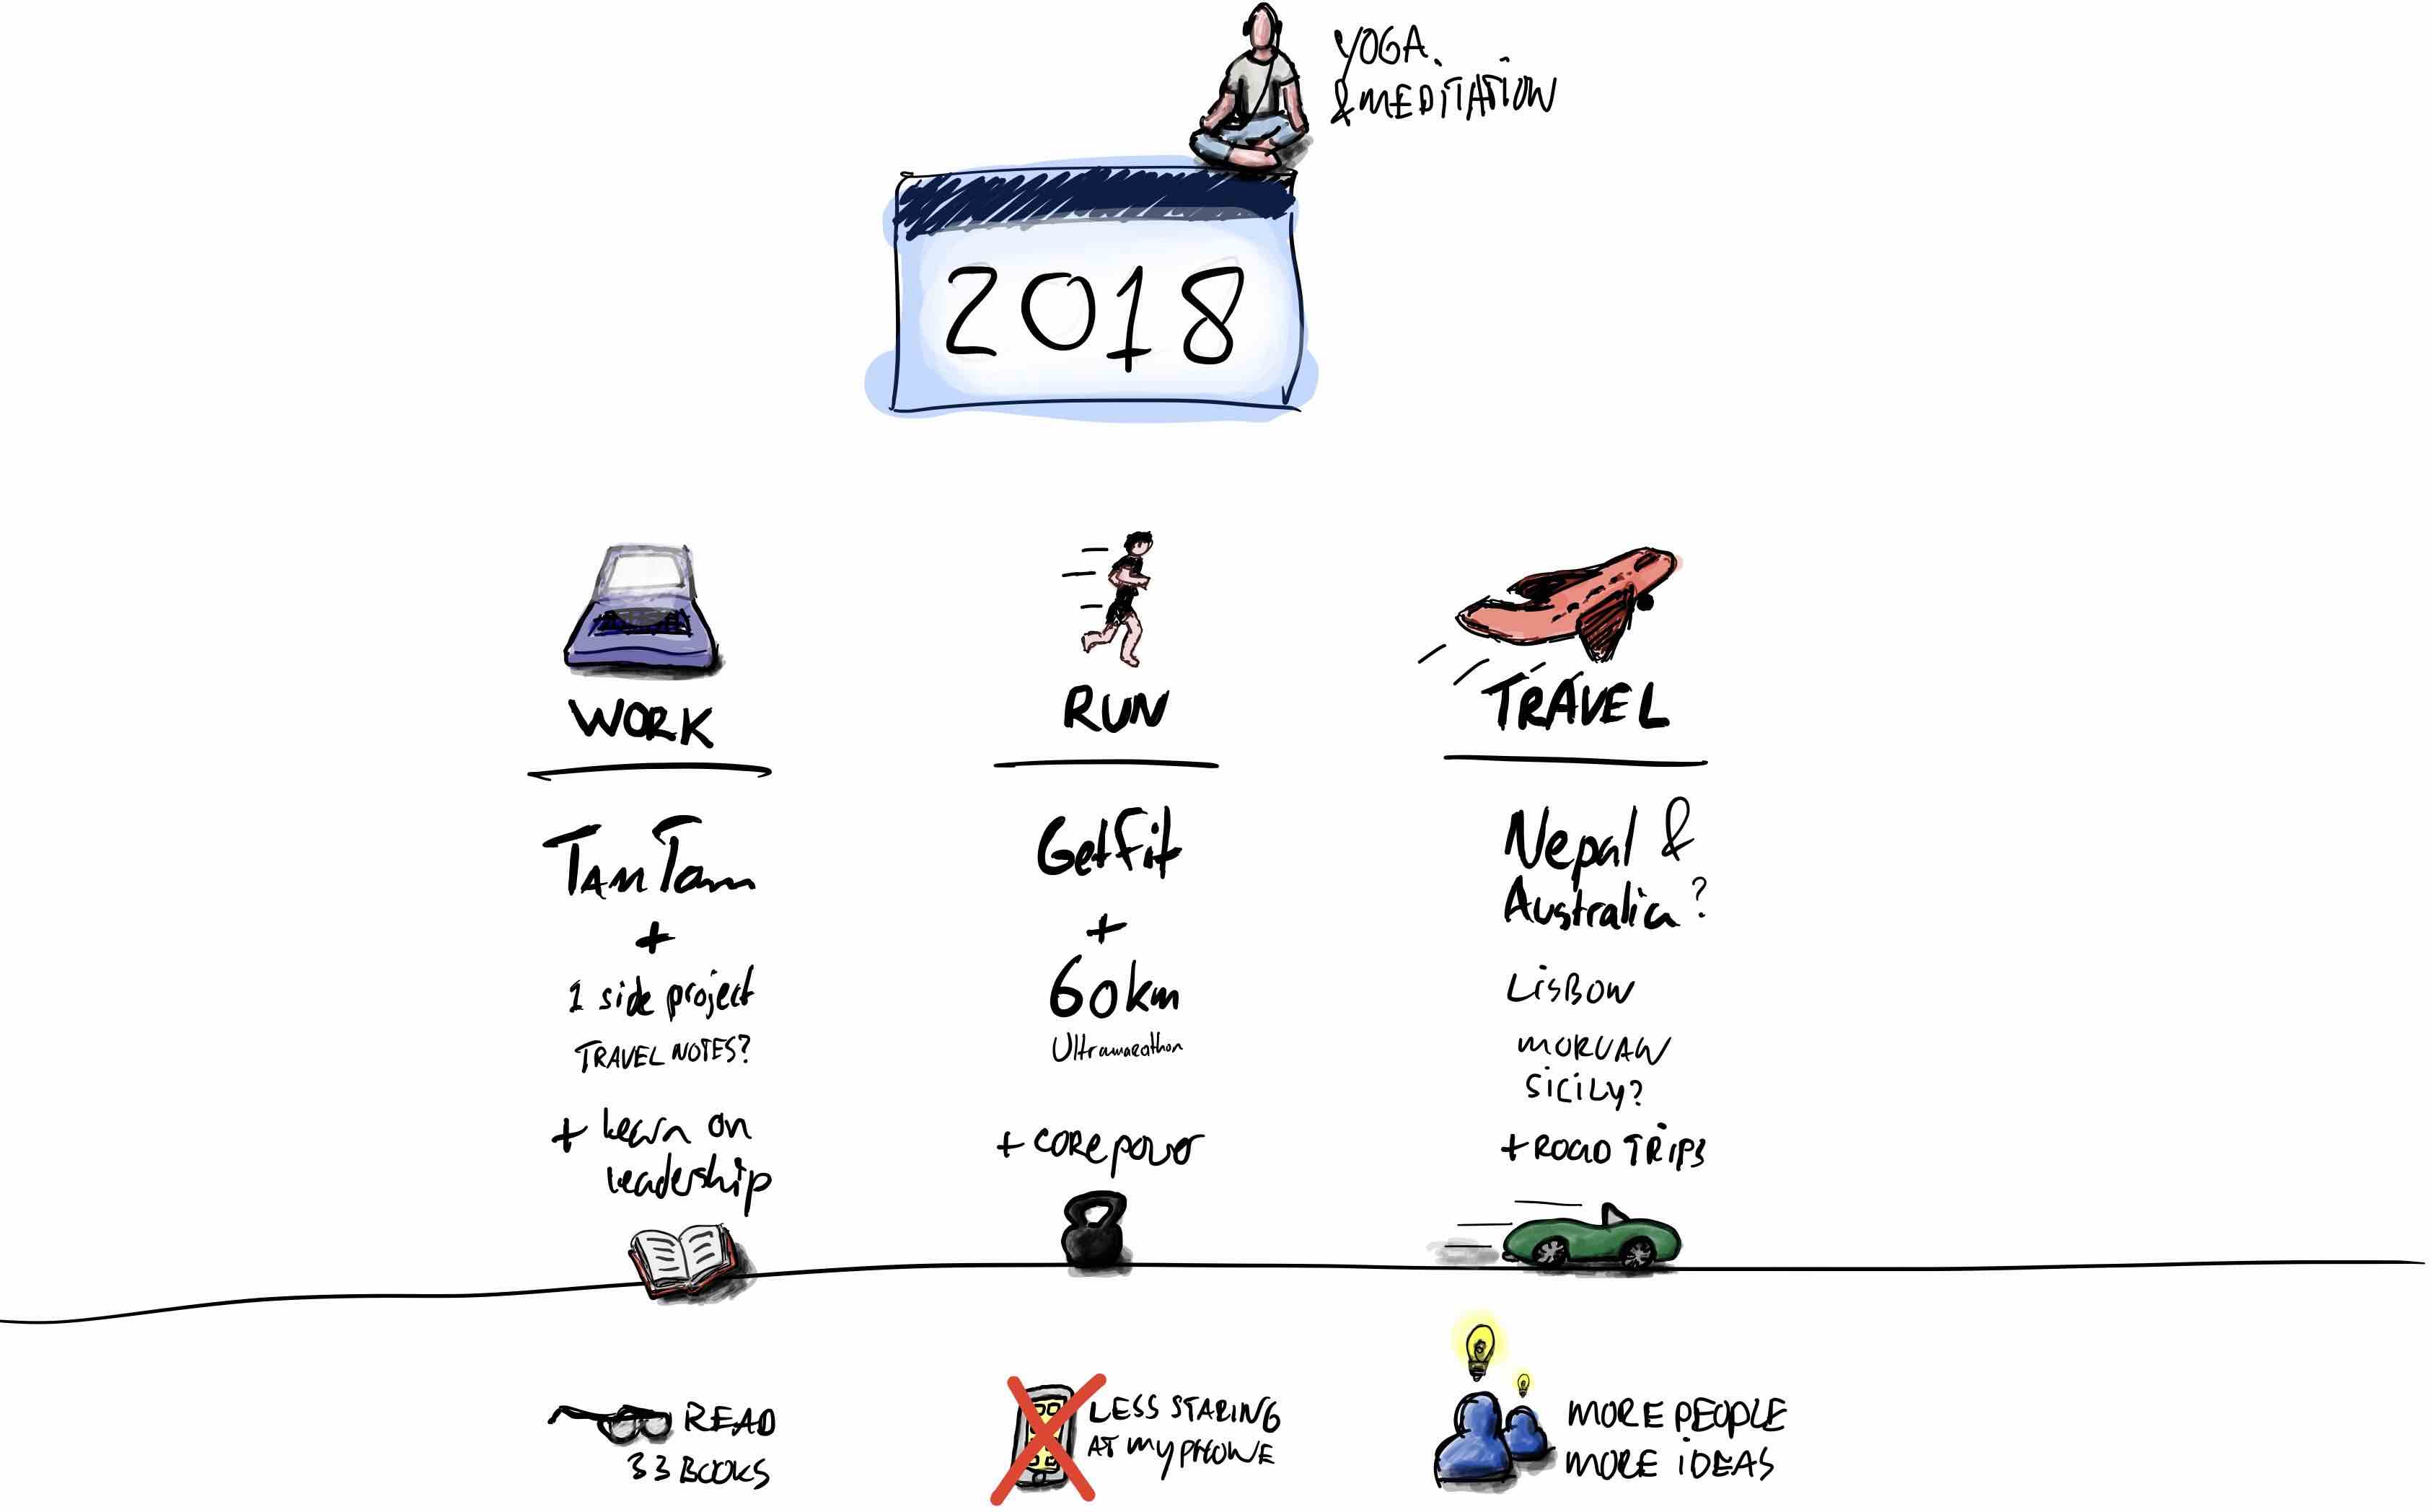 YOGA
& MEDITATION
2018
WORK
TamTam
+
1 side project
TRAVEL NOTES?
+ learn on
leadership
RUN
Getfit
+
60km
Ultramarathon
+ core power
TRAVEL
Nepal &
Australia?
LISBON
MORVAN
SICILY?
+ ROAD TRIPS
READ
33 BOOKS
LESS STARING
AT MY PHONE
MORE PEOPLE
MORE IDEAS